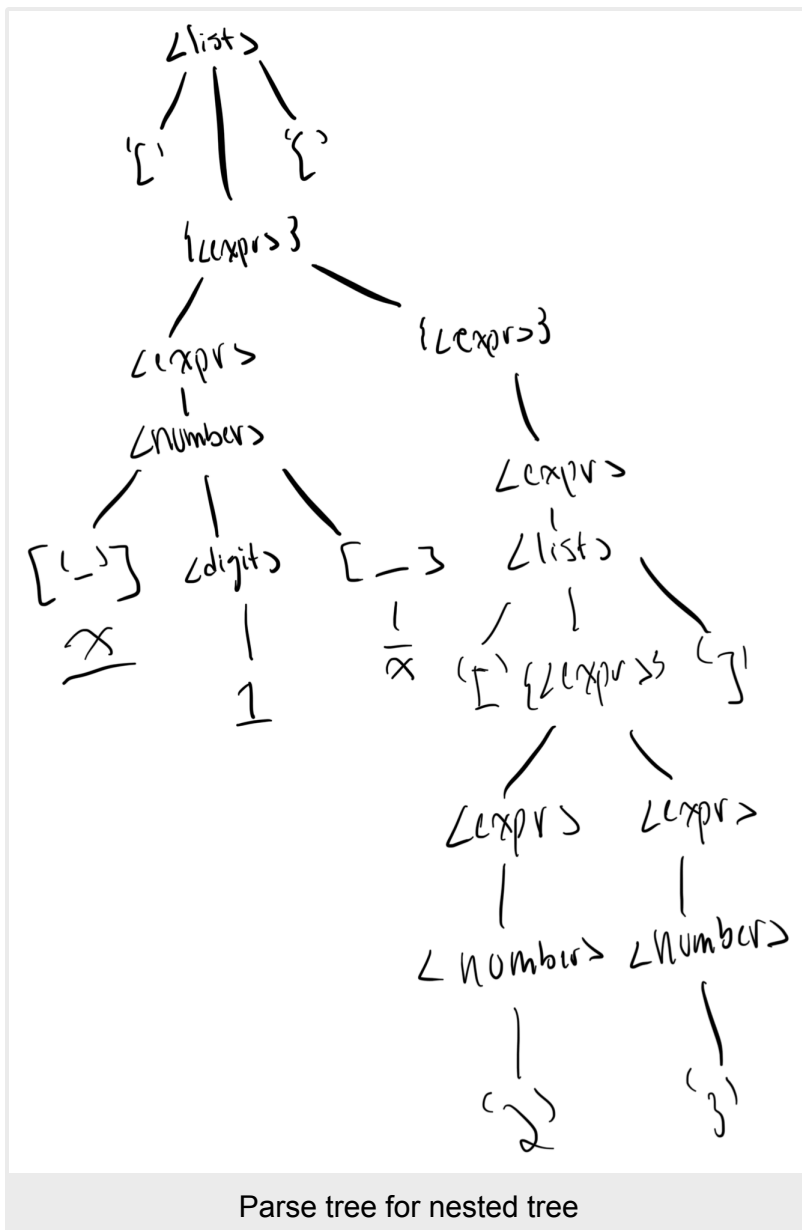 <list>
'[' '['
{<expr>}
<expr> {<expr>}
<number>
<expr>
['_'] <digit> [_] <list>
x 1 x '[' {<expr>} ']'
<expr> <expr>
<number> <number>
'2' '3'
Parse tree for nested tree